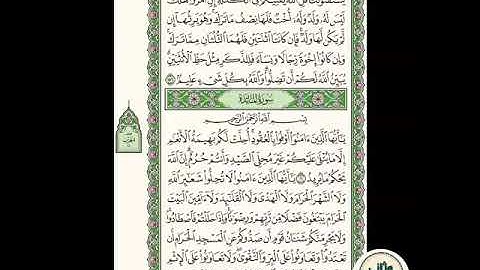 يَسْتَفْتُونَكَ قُلِ ٱللَّهُ يُفْتِيكُمْ فِي ٱلْكَلَٰلَةِ إِنِ ٱمْرُؤٌا۟ هَلَكَ
لَيْسَ لَهُۥ وَلَدٌ وَلَهُۥٓ أُخْتٌ فَلَهَا نِصْفُ مَا تَرَكَ وَهُوَ يَرِثُهَآ إِن
لَّمْ يَكُن لَّهَا وَلَدٌ فَإِن كَانَتَا ٱثْنَتَيْنِ فَلَهُمَا ٱلثُّلُثَانِ مِمَّا تَرَكَ
وَإِن كَانُوٓا۟ إِخْوَةً رِّجَالًا وَنِسَآءً فَلِلذَّكَرِ مِثْلُ حَظِّ ٱلْأُنثَيَيْنِ
يُبَيِّنُ ٱللَّهُ لَكُمْ أَن تَضِلُّوا۟ وَٱللَّهُ بِكُلِّ شَىْءٍ عَلِيمٌۢ ١٧٦
سُورَةُ المَائِدَةِ
بِسْمِ ٱللَّهِ ٱلرَّحْمَٰنِ ٱلرَّحِيمِ
يَٰٓأَيُّهَا ٱلَّذِينَ ءَامَنُوٓا۟ أَوْفُوا۟ بِٱلْعُقُودِ أُحِلَّتْ لَكُم بَهِيمَةُ ٱلْأَنْعَٰمِ
إِلَّا مَا يُتْلَىٰ عَلَيْكُمْ غَيْرَ مُحِلِّى ٱلصَّيْدِ وَأَنتُمْ حُرُمٌ إِنَّ ٱللَّهَ
يَحْكُمُ مَا يُرِيدُ ١ يَٰٓأَيُّهَا ٱلَّذِينَ ءَامَنُوا۟ لَا تُحِلُّوا۟ شَعَٰٓئِرَ ٱللَّهِ
وَلَا ٱلشَّهْرَ ٱلْحَرَامَ وَلَا ٱلْهَدْىَ وَلَا ٱلْقَلَٰٓئِدَ وَلَآ ءَآمِّينَ ٱلْبَيْتَ
ٱلْحَرَامَ يَبْتَغُونَ فَضْلًا مِّن رَّبِّهِمْ وَرِضْوَٰنًا وَإِذَا حَلَلْتُمْ فَٱصْطَادُوا۟
وَلَا يَجْرِمَنَّكُمْ شَنَـَٔانُ قَوْمٍ أَن صَدُّوكُمْ عَنِ ٱلْمَسْجِدِ ٱلْحَرَامِ أَن
تَعْتَدُوا۟ وَتَعَاوَنُوا۟ عَلَى ٱلْبِرِّ وَٱلتَّقْوَىٰ وَلَا تَعَاوَنُوا۟ عَلَى ٱلْإِثْمِ